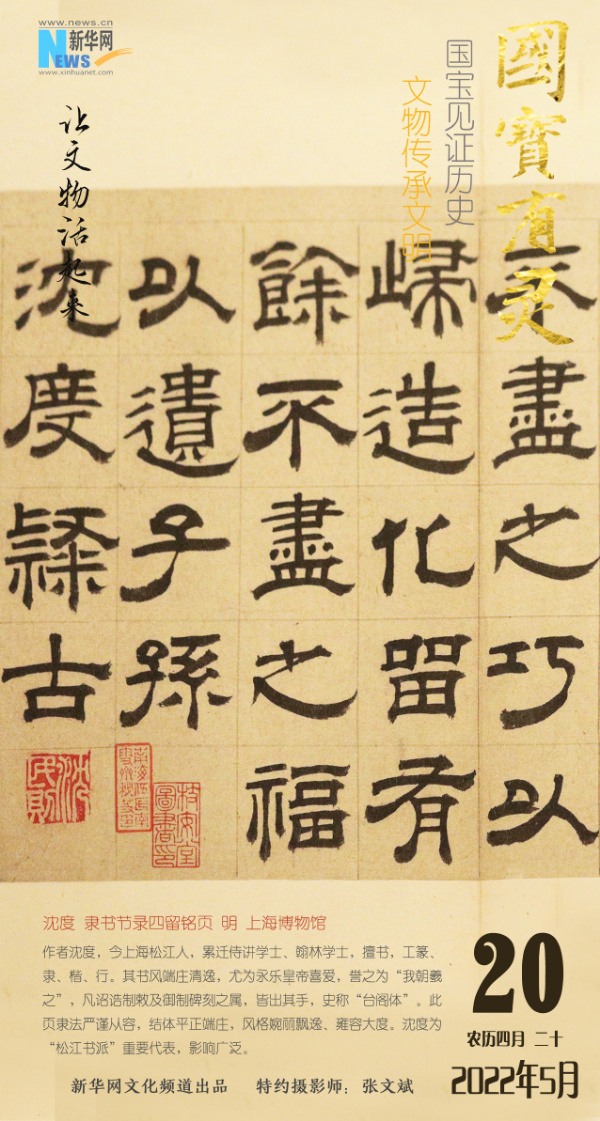 www.news.cn
新华网
NEWS
www.xinhuanet.com
國寶有灵
国宝见证历史
文物传承文明
让文物活起来
不盡之巧以
歸造化留有
餘不盡之福
以遺子孫
沈度隸古
沈民則
沈度 隶书节录四留铭页 明 上海博物馆
作者沈度，今上海松江人，累迁侍讲学士、翰林学士，擅书，工篆、
隶、楷、行。其书风端庄清逸，尤为永乐皇帝喜爱，誉之为“我朝羲
之”，凡诏诰制敕及御制碑刻之属，皆出其手，史称“台阁体”。此
页隶法严谨从容，结体平正端庄，风格婉丽飘逸、雍容大度。沈度为
“松江书派”重要代表，影响广泛。
新华网文化频道出品 特约摄影师：张文斌
20
农历四月 二十
2022年5月